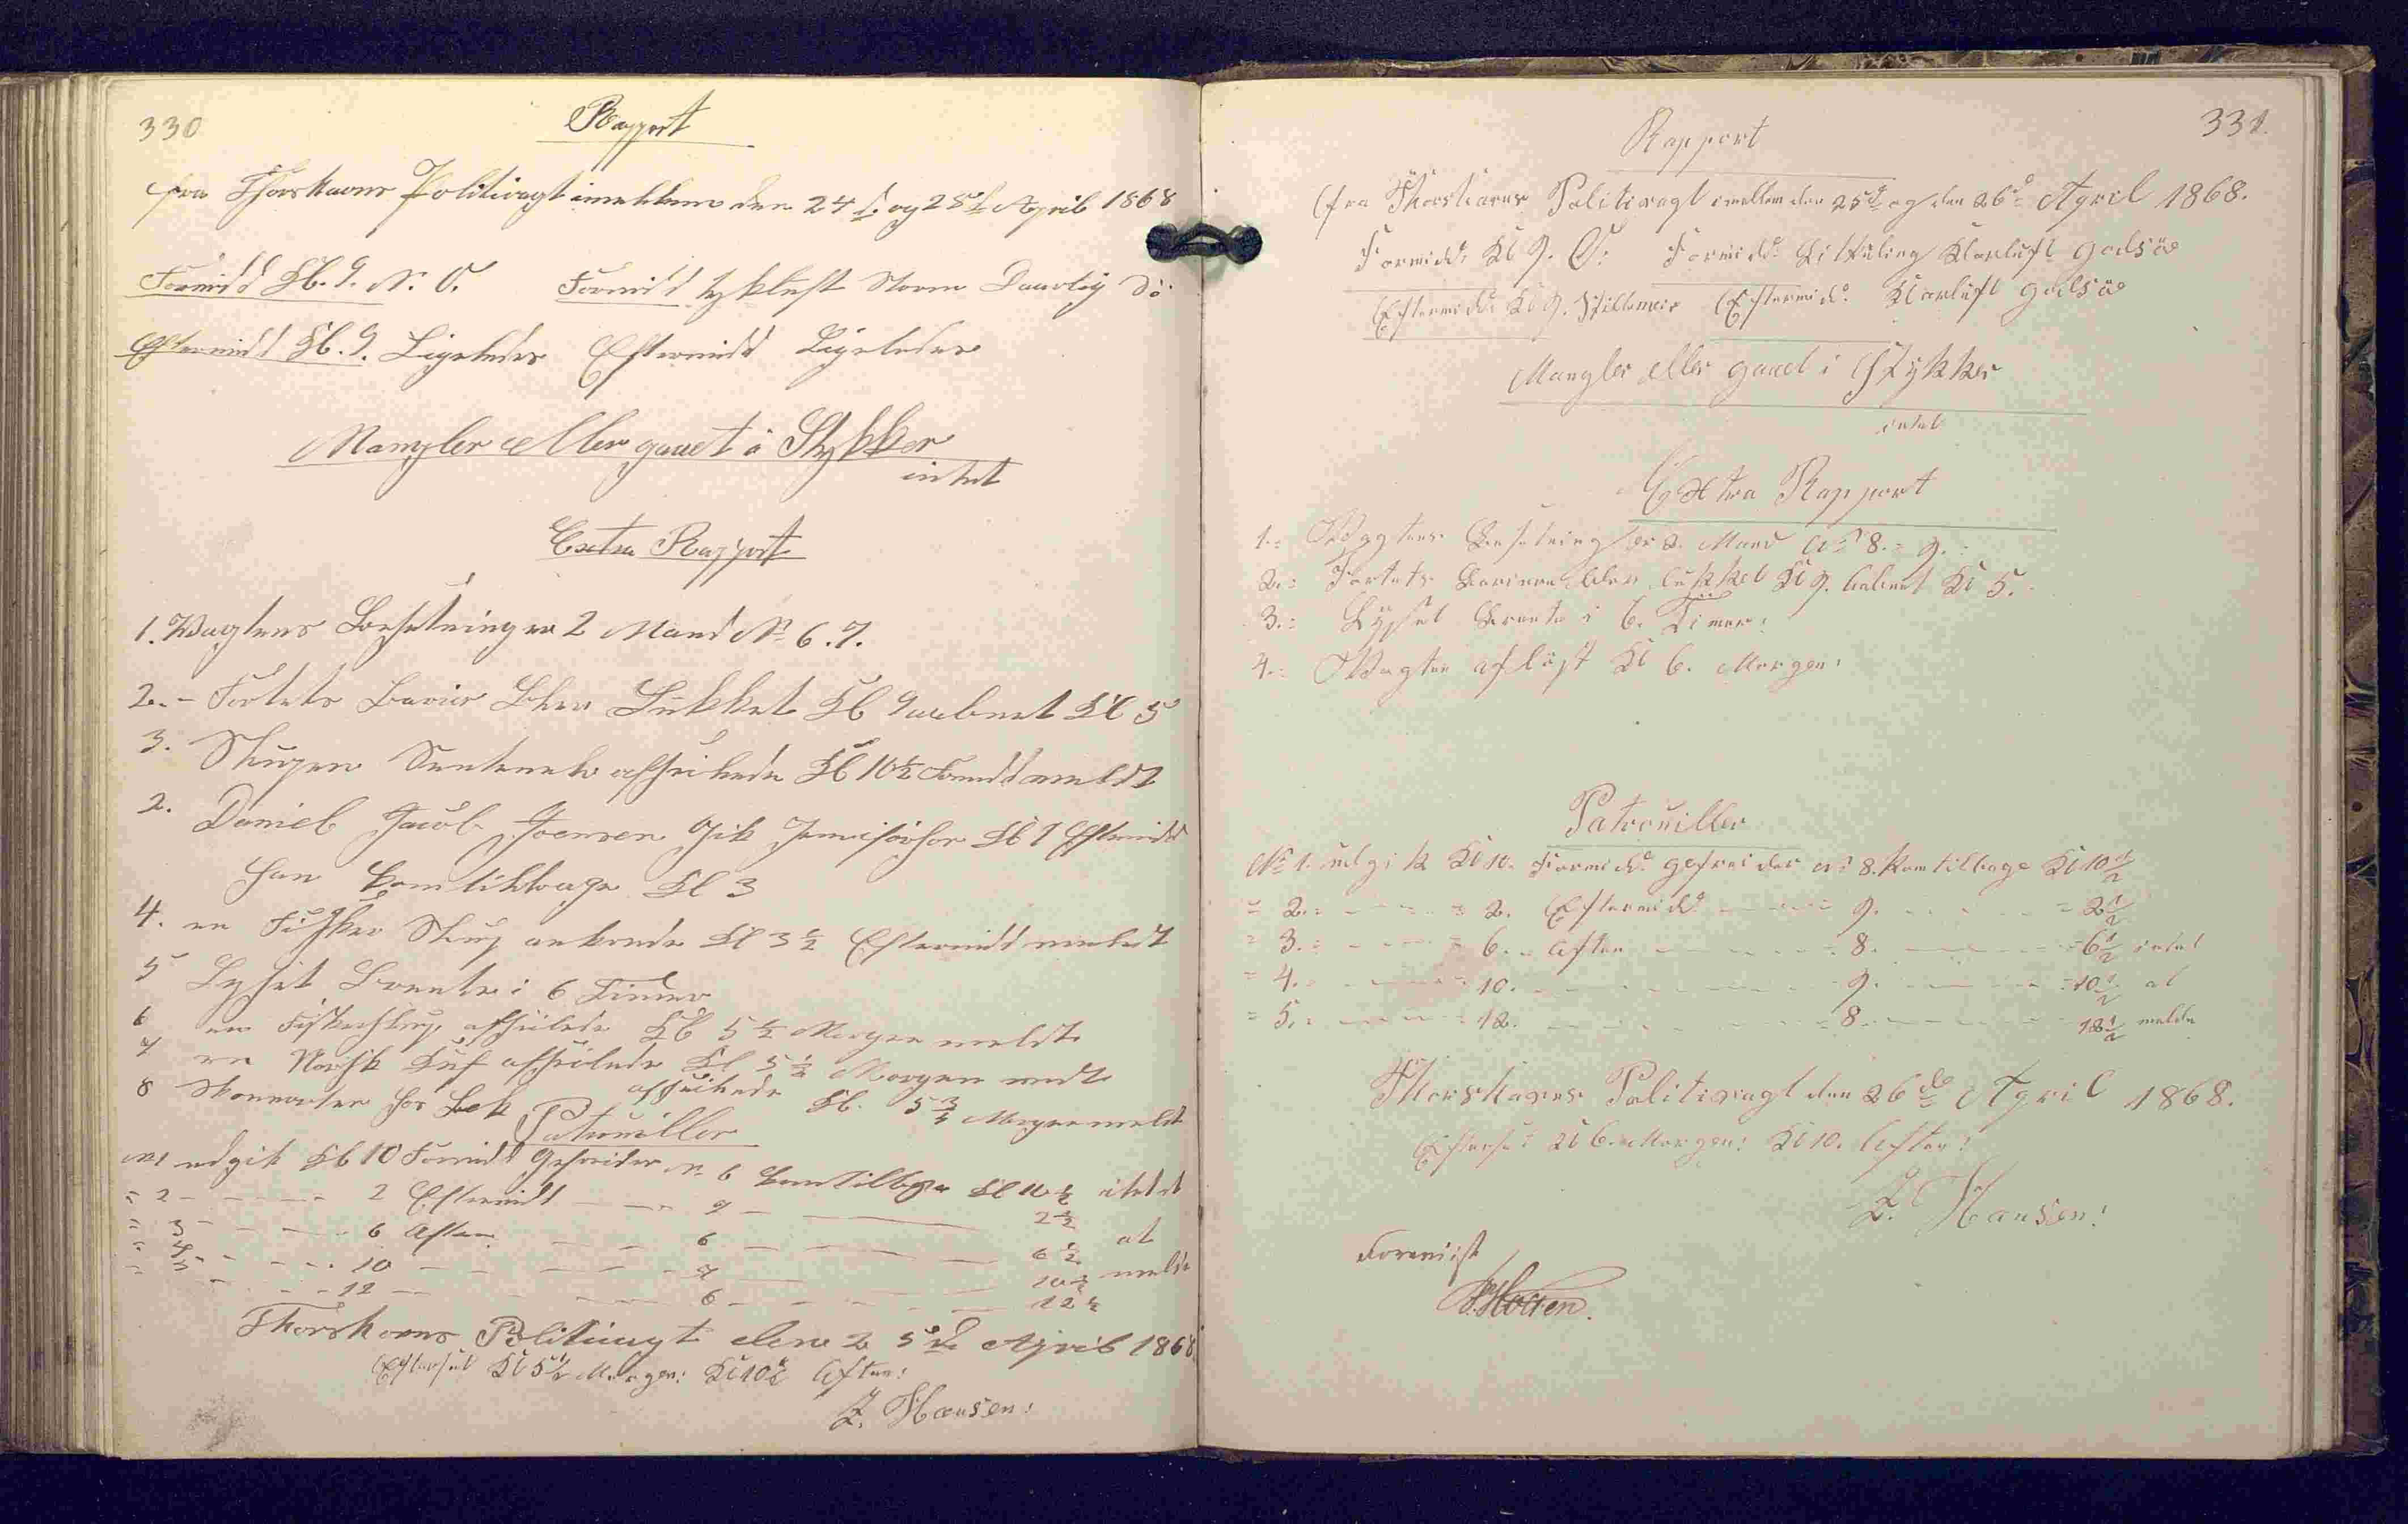 330
Rapport
fra Thorshavns Politivagt imellem den 24d og 25d April 1868
Formidd Kl. 9. N. O. Formidd tykluft Storm Daarlig Sö
Eftermidd Kl. 9. Ligeledes Eftermidd Ligeledes
Mangler eller gaaet i Stykker
intet
Extra Rapport
1. Wagtens Besetning er 2 Mand No 6. 7.
2. Fortets Barier blev Lukket Kl 9 aabnet Kl 5
3. Slupen afseilede Kl 10½ Formidd meldt
2. Daniel Jacob Joensen Gik Kl 1 Eftermidd
han kom tilbage Kl 3
4. en Fisker Slup ankrede Kl 3½ Eftermidd meldt
5 Lyset brente i 6 Timer
6 en Fiskerslup afseilede Kl 5½ Morgen meldt
7 en Norsk afseilede Kl 5½ Morgen meldt
8 Skonnerten afseilede Kl. 5¾ Morgen meldt
Patrouiller
No 1 udgik Kl 10 Formidd Gefreider No 6 kom tilbage Kl 10½ intet
" 2 - - - - 2 Eftermidd - - 7 - - 2½
" 3 - - - - 6 Aften - - 6 - - 6½ at
" 4 - - - - 10 - - - - 7 - - 10½ melde
" 5 - - - - 12 - - - - 6 - - 12½
Thorshavns Politivagt den 25de April 1868
Efterset Kl 5½ Morgen: Kl 10½ Aften:
Z. Hansen:
331.
Rapport
fra Thorshavns Politivagt imellem den 25d og den 26d April 1868.
Formidd: Kl 9. O: Formidd: Kuling Klarluft godsöe
Eftermidd: Kl 9. Stillenoie Eftermidd: Klarluft godsöe
Mangler eller gaaet i Stykker
intet
Extra Rapport
1. Wagtens Besetning er 2. Mand No 8. = 9.
2. Fortets blev lukket Kl 9. aabent Kl 5.
3. Lyset brente i 6. Timer:
4. Wagten aflöst Kl 6. Morgen:
Patrouiller
No 1. udgik Kl 10. Formidd: gefreider No 8. kom tilbage Kl 10½
= 2. - - - = 2. Eftermidd: - - 9. - - = 2½
= 3. - - - = 6. Aften - - = 8. - - = 6½ intet
= 4. - - - = 10. - - - - 9. - - = 10½ at
= 5. - - - = 12. - - - = 8. - - 12½ melde
Thorshavns Politivagt den 26de April 1868.
Efterset Kl 6. Morgen: Kl 10. Aften:
Z. Hansen:
Forevist